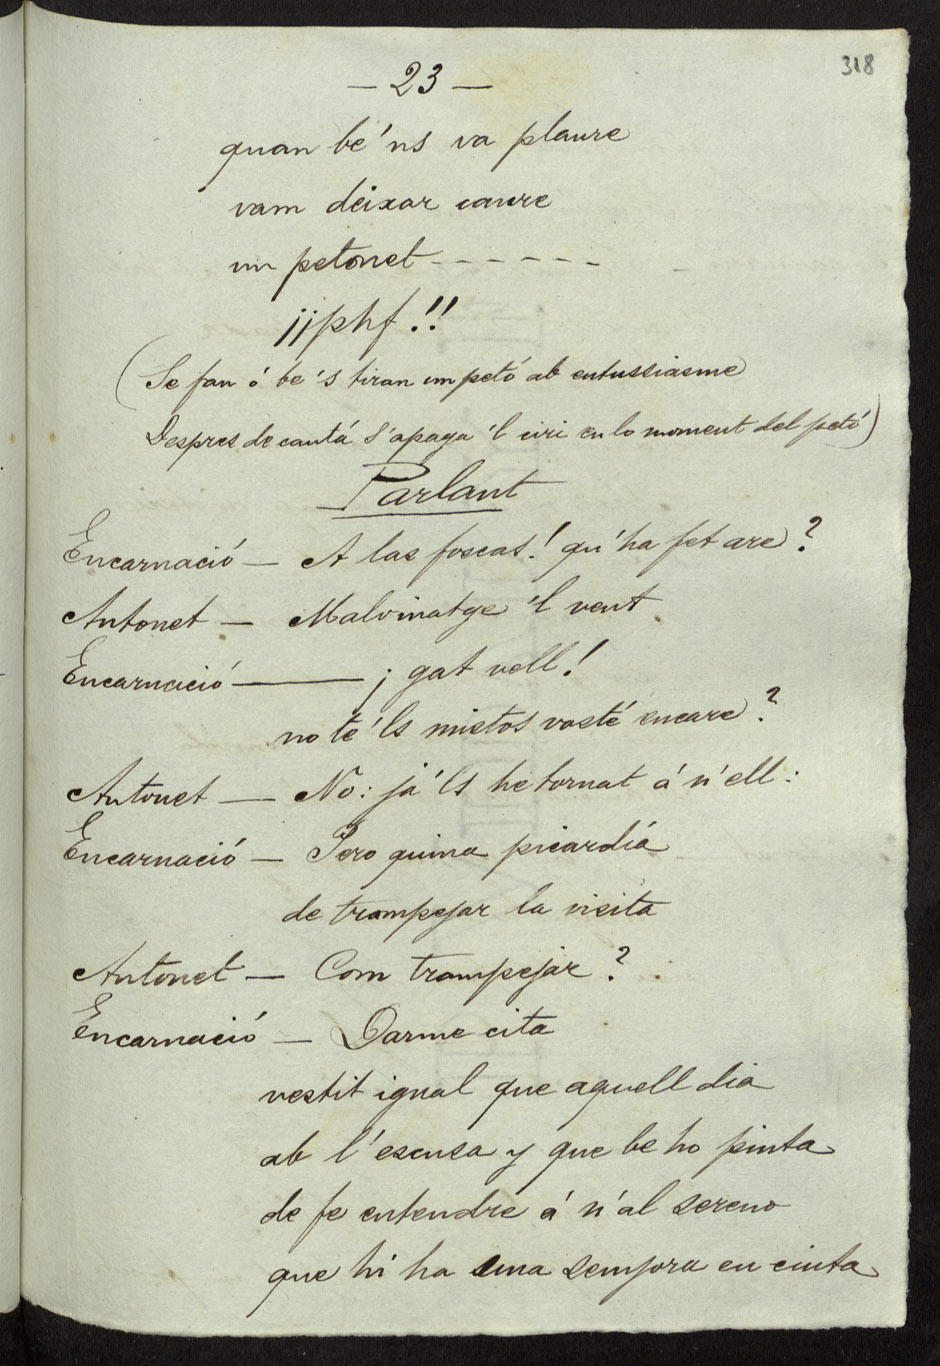 318
— 23 —
quan bé 'ns va plaure
vam deixar caure
un petonet - - - - - -
¡¡phf!!
(Se fan ó be 's tiran un petó ab entussiasme
Despres de cantá s'apaga 'l ciri en lo moment del petó)
Parlant
Encarnació — A las foscas! qu'ha fet are?
Antonet — Malvinatge 'l vent
Encarnació — ¡gat vell!
no té 'ls mistos vosté encare?
Antonet — No: ja 'ls he tornat á n'ell:
Encarnació — Pero quina picardía
de trampejar la visita
Antonet — Com trampejar?
Encarnació — Darme cita
vestit igual que aquell dia
ab l'escusa y que be ho pinta
de fe entendre á n'al sereno
que hi ha una senyora en cinta